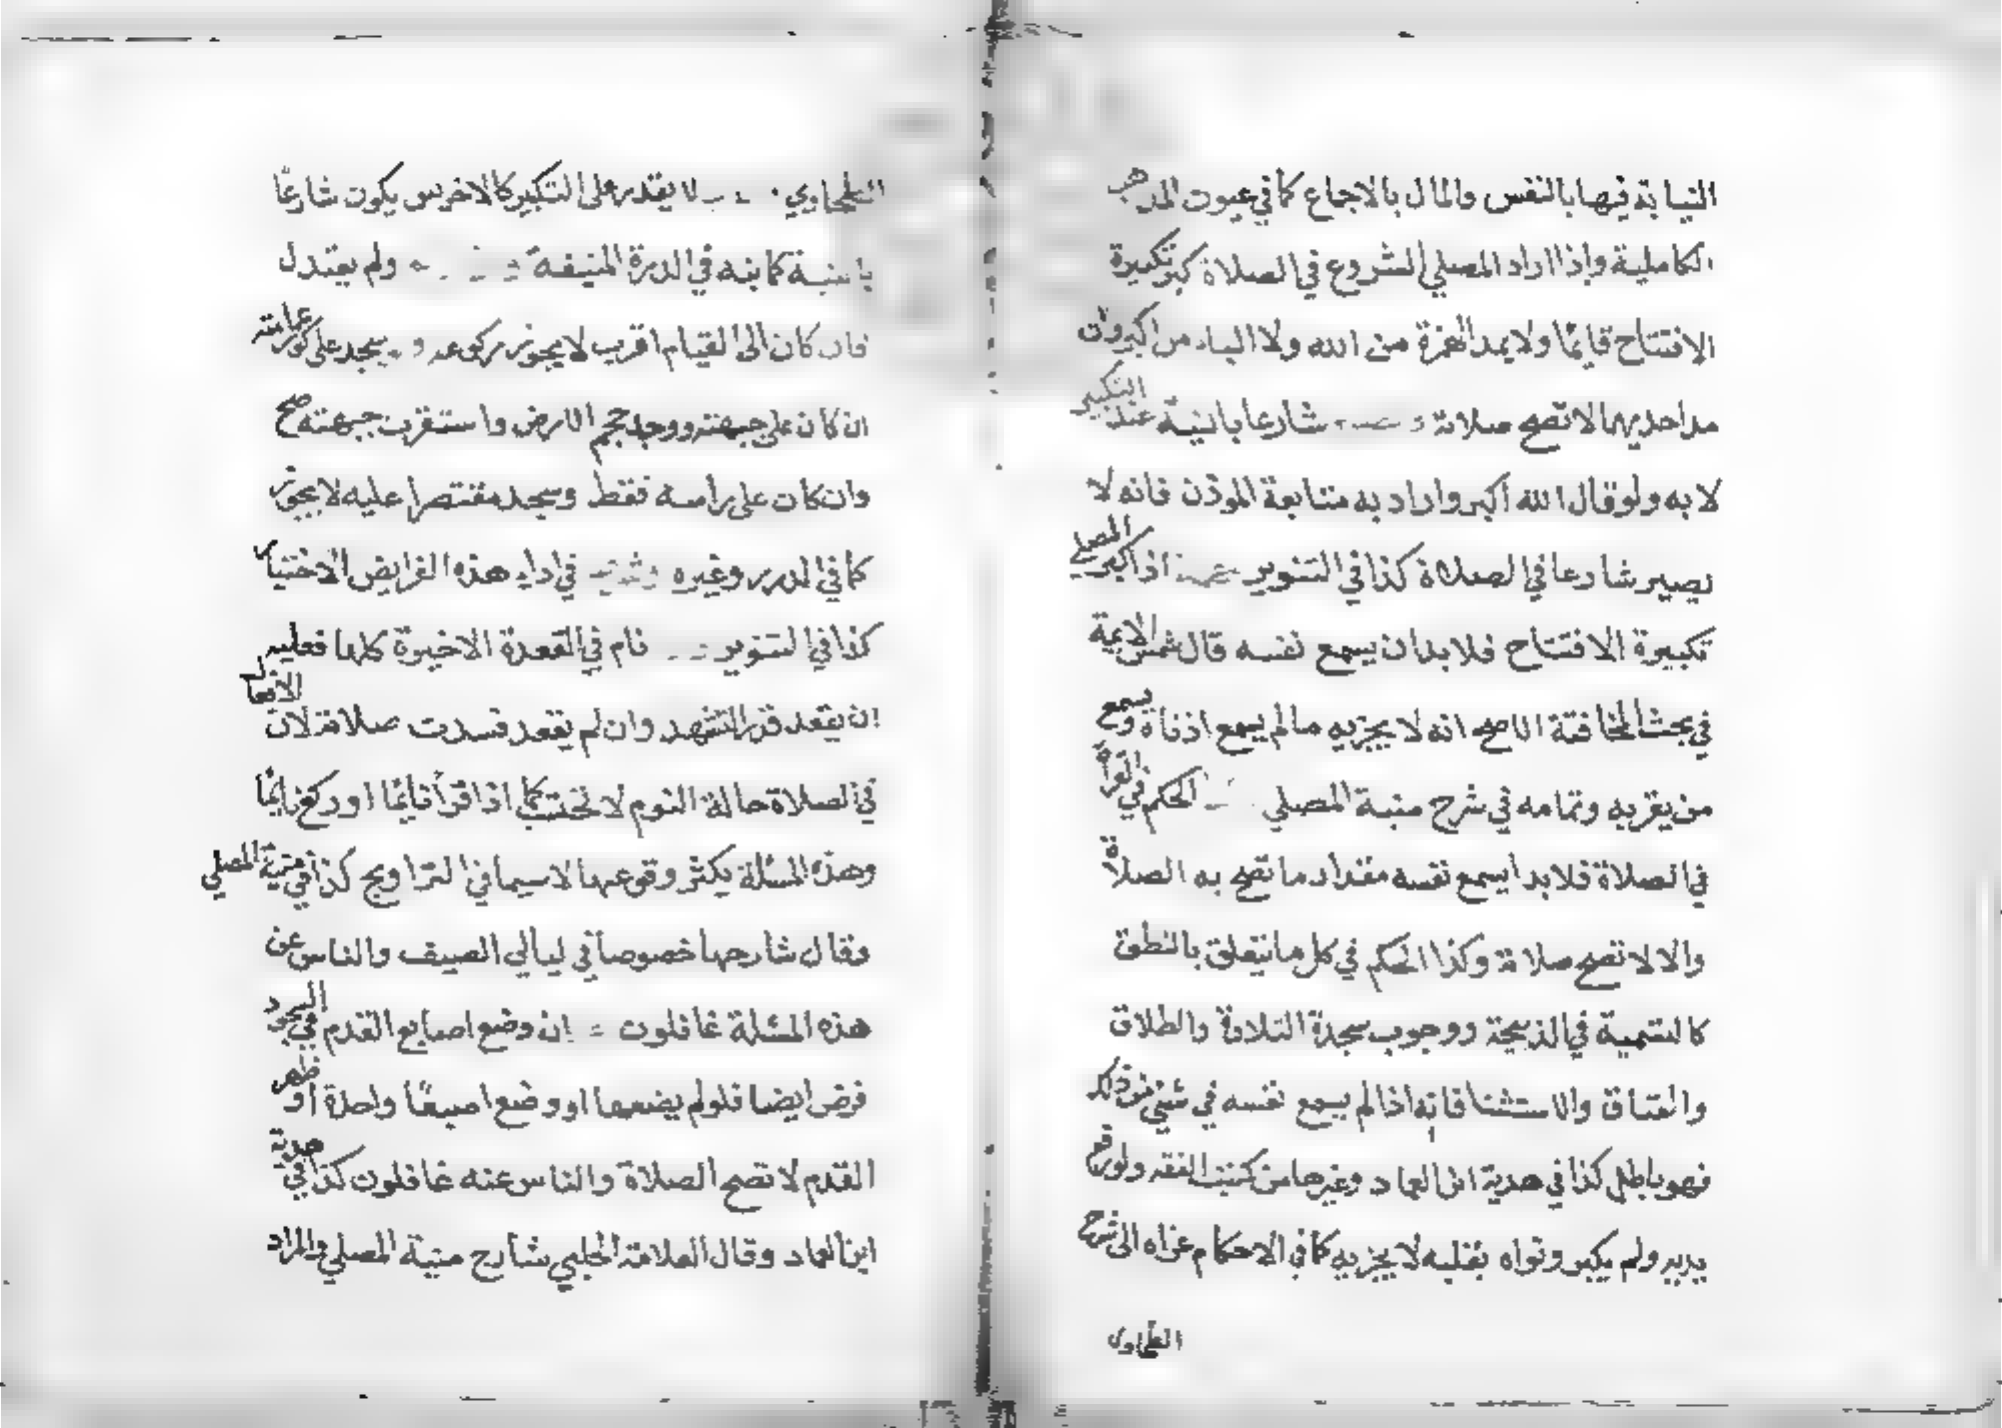 النيابة فيها بالنفس والمال بالاجماع كما في عيون المذهب
الكاملية واذا اراد المصلي الشروع في الصلاة كبر تكبيرة
الافتتاح قايمًا ولا يمد الهمزة من الله ولا الباء من اكبر وان
مد احديهما لا تصح صلاته شارعا بالنية عند التكبير
لا به ولو قال الله اكبر واراد به متابعة الموذن فانه لا
يصير شارعا في الصلاة كذا في التنوير اذا كبر المصلي
تكبيرة الافتتاح فلا بد ان يسمع نفسه قال شمس الايمة
في بحث المخافتة الاصح انه لا يجزيه ما لم يسمع اذناه ويسمع
من يقربه وتمامه في شرح منية المصلي الحكم في القراة
في الصلاة فلا بد ايسمع نفسه مقدار ما تصح به الصلاة
والا لا تصح صلاته وكذا الحكم في كل ما يتعلق بالنطق
كالتسمية في الذبيحة ووجوب سجدة التلاوة والطلاق
والعتاق والاستثنا فانه اذا لم يسمع نفسه في شيئ من ذلك
فهو باطل كذا في هدية ابن العماد وغيرها من كتب الفقه ولو رفع
يديه ولم يكبر ونواه بقلبه لا يجزيه كما في الاحكام عزاه الى شرح
الطحاوي
الطحاوي لا يقدر على التكبير كالاخرس يكون شارعًا
بالنية كما بينه في الدرة المنيفة ولم يعتدل
فان كان الى القيام اقرب لا يجوز ركوعه سجد على كور عمامته
ان كان على جبهته ووجد حجم الارض واستقرت جبهته صح
وان كان على راسه فقط وسجد مقتصرا عليه لا يجوز
كما في الدرر وغيره في اداء هذه الفرايض الاختيار
كذا في التنوير نام في القعدة الاخيرة كلها فعليه
ان يقعد قدر التشهد وان لم يقعد فسدت صلاته لان الافعال
في الصلاة حالة النوم لا تحتسب كما اذا قرأ نايمًا او ركع نايمًا
وهذه المسئلة يكثر وقوعها لا سيما في التراويح كذا في منية المصلي
وقال شارحها خصوصا في ليالي الصيف والناس عن
هذه المسئلة غافلون ان وضع اصابع القدم في السجود
فرض ايضا فلو لم يضعها او وضع اصبعًا واحدة او ظهر
القدم لا تصح الصلاة والناس عنه غافلون كذا في هدية
ابن العماد وقال العلامة الحلبي شارح منية المصلي والمراد